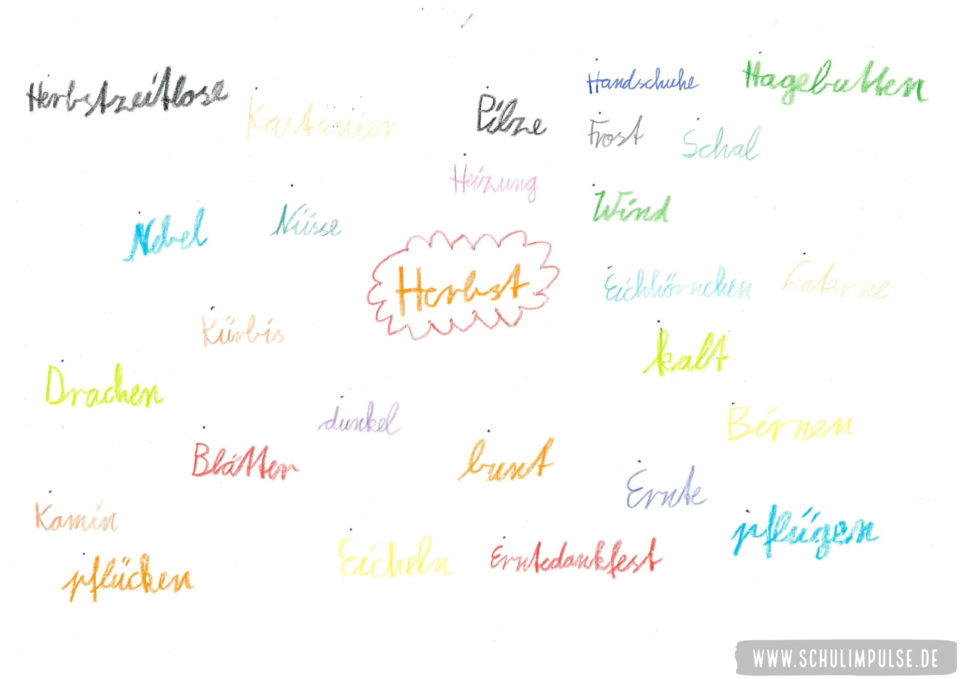 Herbstzeitlose
Kastanien
Pilze
Handschuhe
Hagebutten
Frost
Schal
Heizung
Nebel
Nüsse
Wind
Herbst
Eichhörnchen
Laterne
Kürbis
kalt
Drachen
dunkel
Birnen
Blätter
bunt
Ernte
Kamin
pflücken
Eicheln
Erntedankfest
pflügen
WWW.SCHULIMPULSE.DE